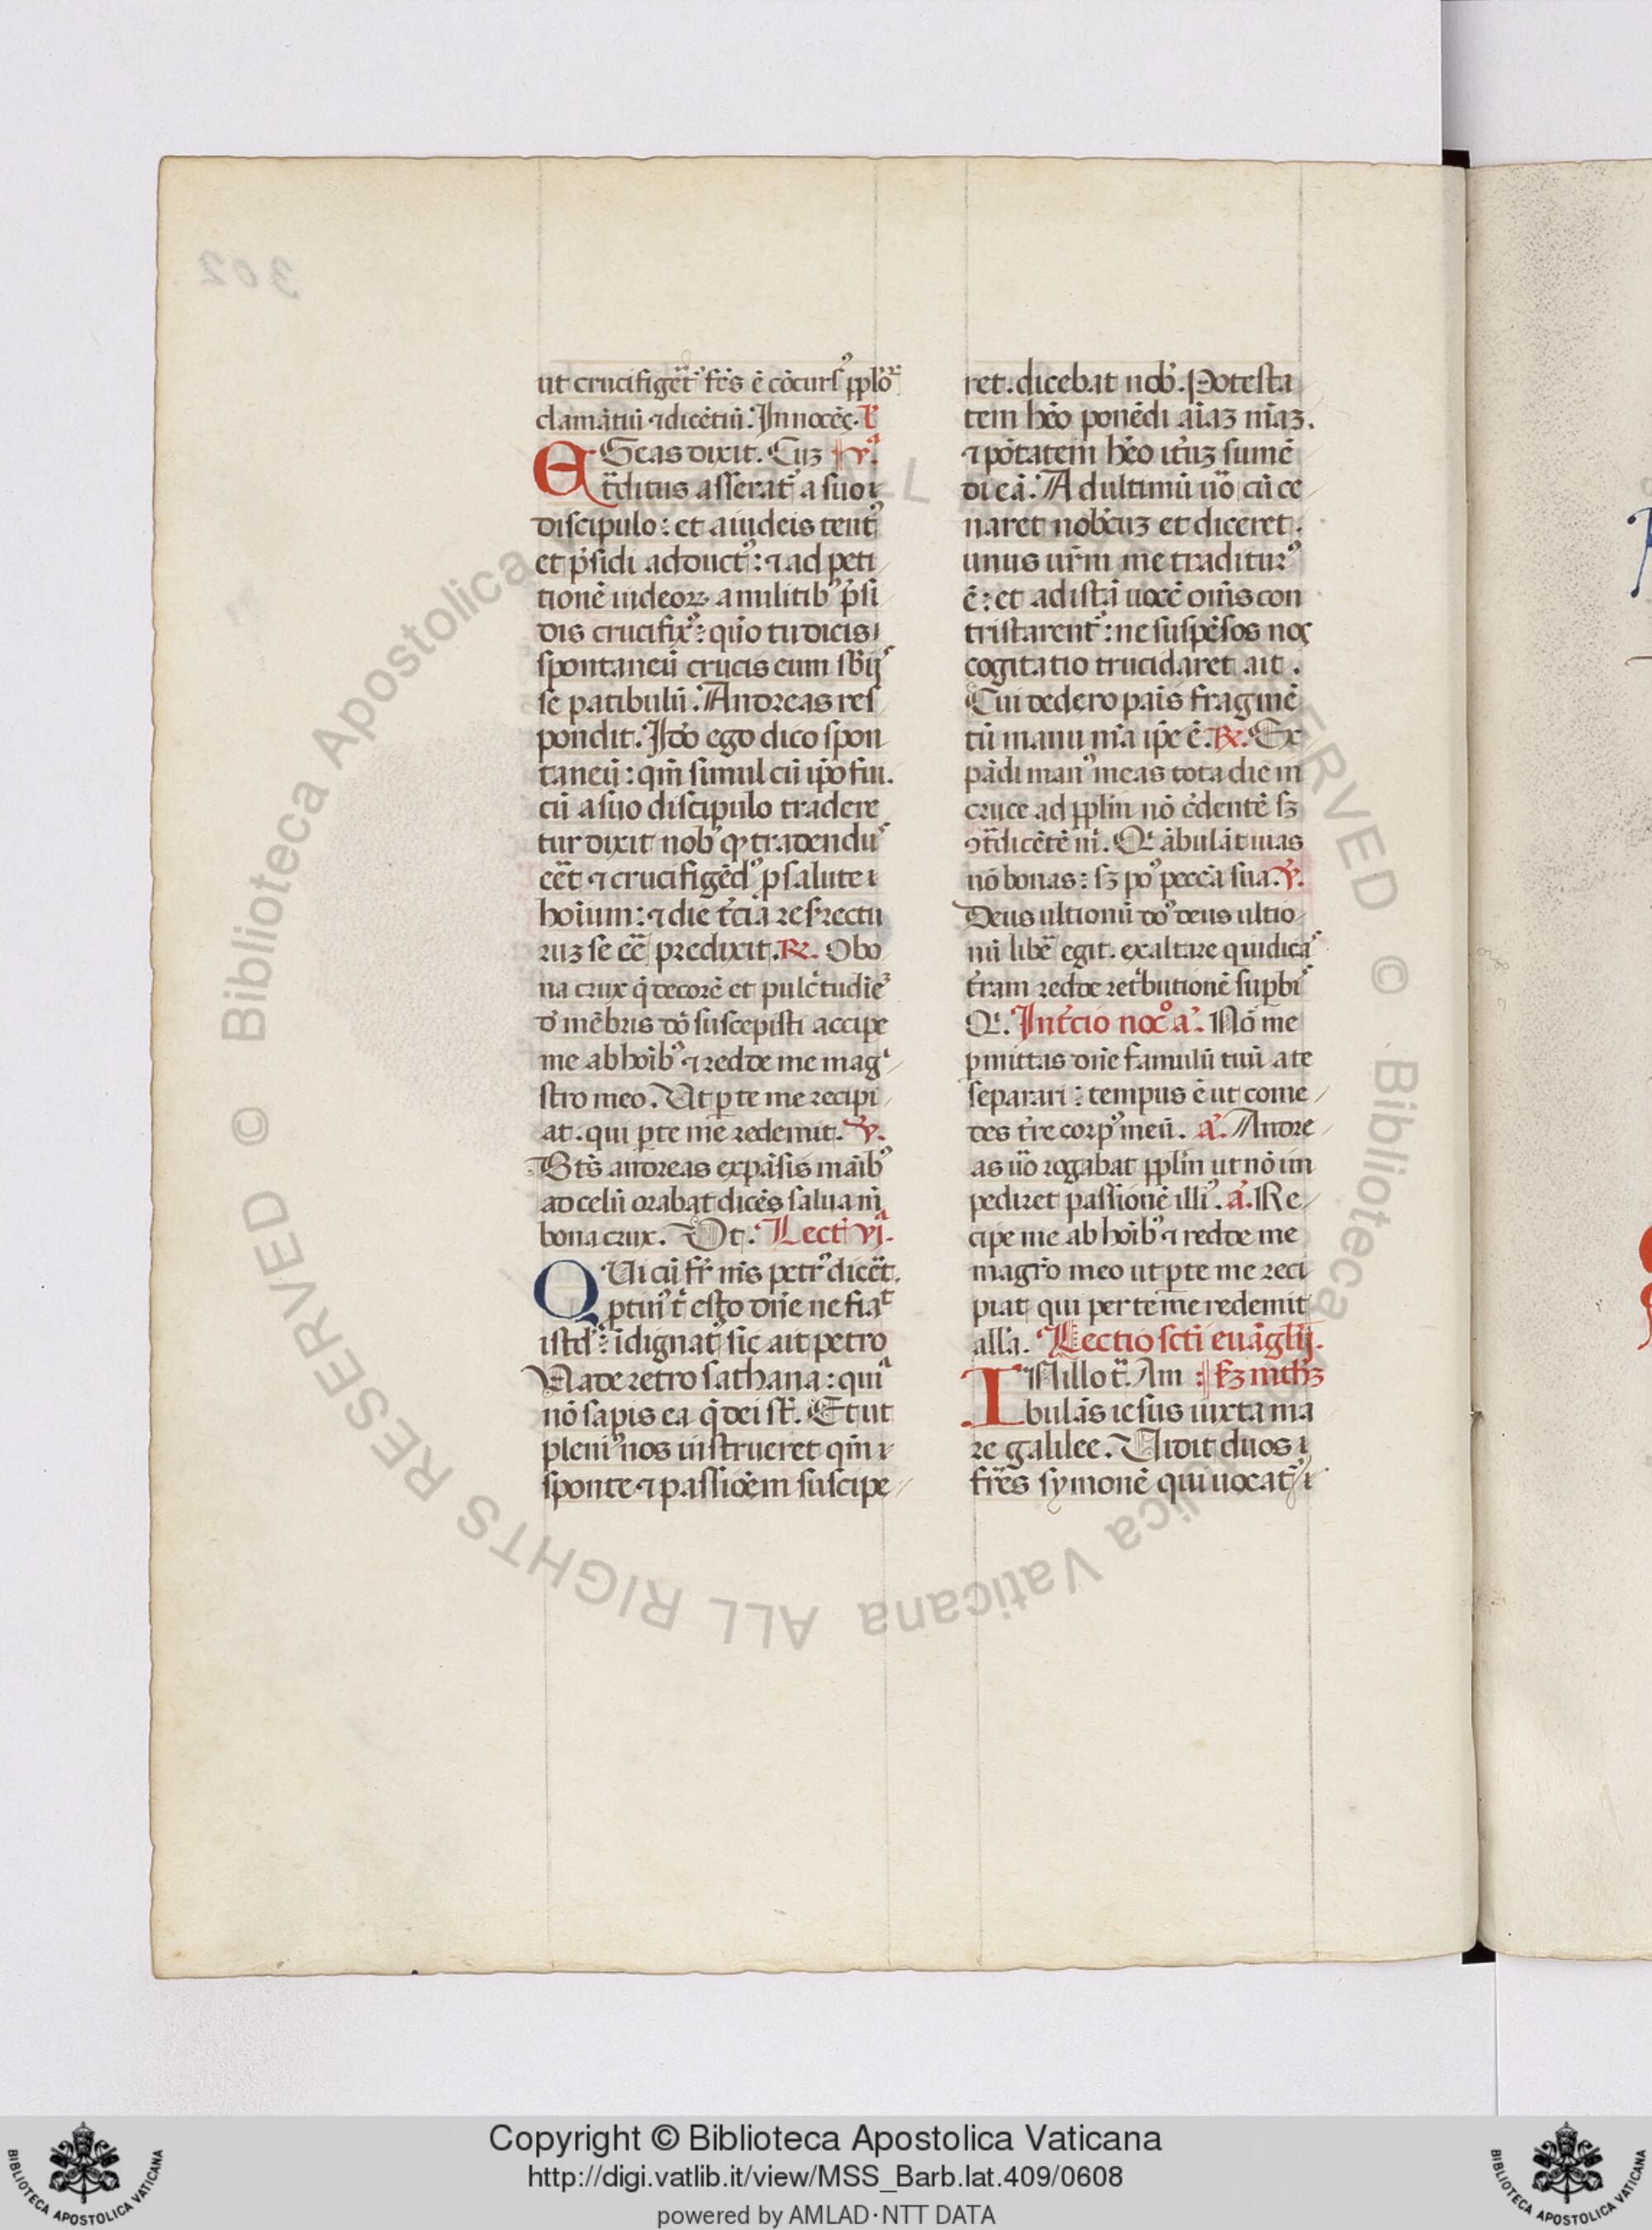 302
ut crucifiget᷑ fc̄s ē cōcurs᷒ ppl̓oꝝ
clamātiū ⁊dicētiū. Innocēs. ℟
EGeas dixit. Cuꝫ v.ᵃ
t̄ditus asserat᷑ a suo
discipulo: et aiudeis tent᷒
et p̄sidi adduct᷒: ⁊ ad peti
tionē iudeoꝝ amilitib᷒ p̄si
dis crucifix᷒: quō tu dicis
spontaneū crucis eum sbijs
se patibulū. Andreas res
pondit. Ido̓ ego dico spon
taneū: qm̄ simul cū ip̄o fui.
cū asuo discipulo tradere
tur dixit nob̓ ꝙ tradendus
eēt ⁊ crucifigēd᷒ ꝑsalute
hoīum: ⁊ die t̓cia resrectu
ruꝫ se eē predixit. ℟. O bo
na crux q̄ decorē et pulc̓tudiē
d̓ mēbris dn̄i suscepisti accipe
me ab hoīb᷒ ⁊ redde me magⁱ
stro meo. Ut ꝑ te me recipi
at. qui ꝑte me redemit. ℣.
Bt̄s andreas expāsis māib᷒
ad celū orabat dicēs salua m̄
bona crux. Ut. Lectᵒ vjᵃ.
QUi cū fr̄ nr̄s petr᷒ dicēt.
ꝓtiu᷒ t̄ esto dn̄e ne fiat
istd᷒: īdignat᷑ sic ait petro
Vade retro sathana: quia
nō sapis ea q̄ dei st̄. Et ut
pleni᷒ nos instrueret qm̄
sponte ⁊ passiōēm suscipe
ret. dicebat nob̓. Potesta
tem hēo ponēdi aīaꝫ mēaꝫ.
⁊ pōtatem hēo it̓uꝫ sumē
di eā. Ad ultimū uō cū ce
naret nobcuꝫ et diceret.
unus ur̄m me traditur᷒
ē: et ad istā uocē om̄s con
tristarent᷑: ne suspēsos nos
cogitatio trucidaret ait.
Cui dedero pais fragmē
tū manu mēa ip̄e ē. ℟. Ex
pādi man᷒ meas tota die in
cruce ad pplm̄ nō c̓dentē sꝫ
ↄt̄dicētē m̄. Qⁱ ābulāt uias
nō bonas: sꝫ po᷒ peccā sua. ℣.
Deus ultionū do᷒ deus ultio
nū libe᷒ egit. exaltare q iudicas
t̓ram redde ret̓butionē suꝑbis
Qⁱ. In t̓cio nocᵒ aᵃ. Nō me
ꝑmittas dn̄e famulū tuū a te
separari: tempus ē ut come
des t̓re corp᷒ meū. aᵃ. Andre
as uō rogabat pplm̄ ut nō im
pediret passionē illi᷒. aᵃ. Re
cipe me ab hoīb᷒ ⁊ redde me
magr̄o meo ut ꝑ te me reci
piat qui per te me redemit
all̄a. Lectio sc̄ti euāglij.
INillo t̄. Am : s̄ꝫ mth̄ꝫ
bulās iesus iuxta ma
re galilee. Uidit duos
fr̄es symonē qui uocat᷑
© Biblioteca Apostolica Vaticana ALL RIGHTS RESERVED © Biblioteca Apostolica Vaticana ALL RIGHTS RESERVED
Copyright © Biblioteca Apostolica Vaticana
http://digi.vatlib.it/view/MSS_Barb.lat.409/0608
powered by AMLAD·NTT DATA
BIBLIOTECA APOSTOLICA VATICANA
BIBLIOTECA APOSTOLICA VATICANA